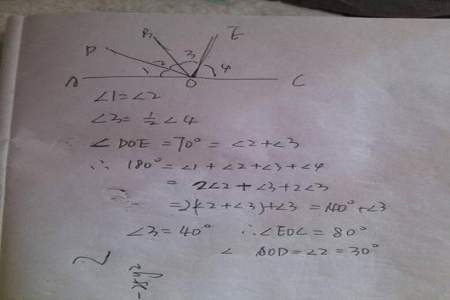 B E
D 3
2 4
A 1 O C
∠1=∠2
∠3=½∠4
∠DOE=70°=∠2+∠3
∴ 180°=∠1+∠2+∠3+∠4
= 2∠2+∠3+2∠3
=2(∠2+∠3)+∠3=140°+∠3
∠3=40° ∴∠EOC=80°
∠BOD=∠2=30°